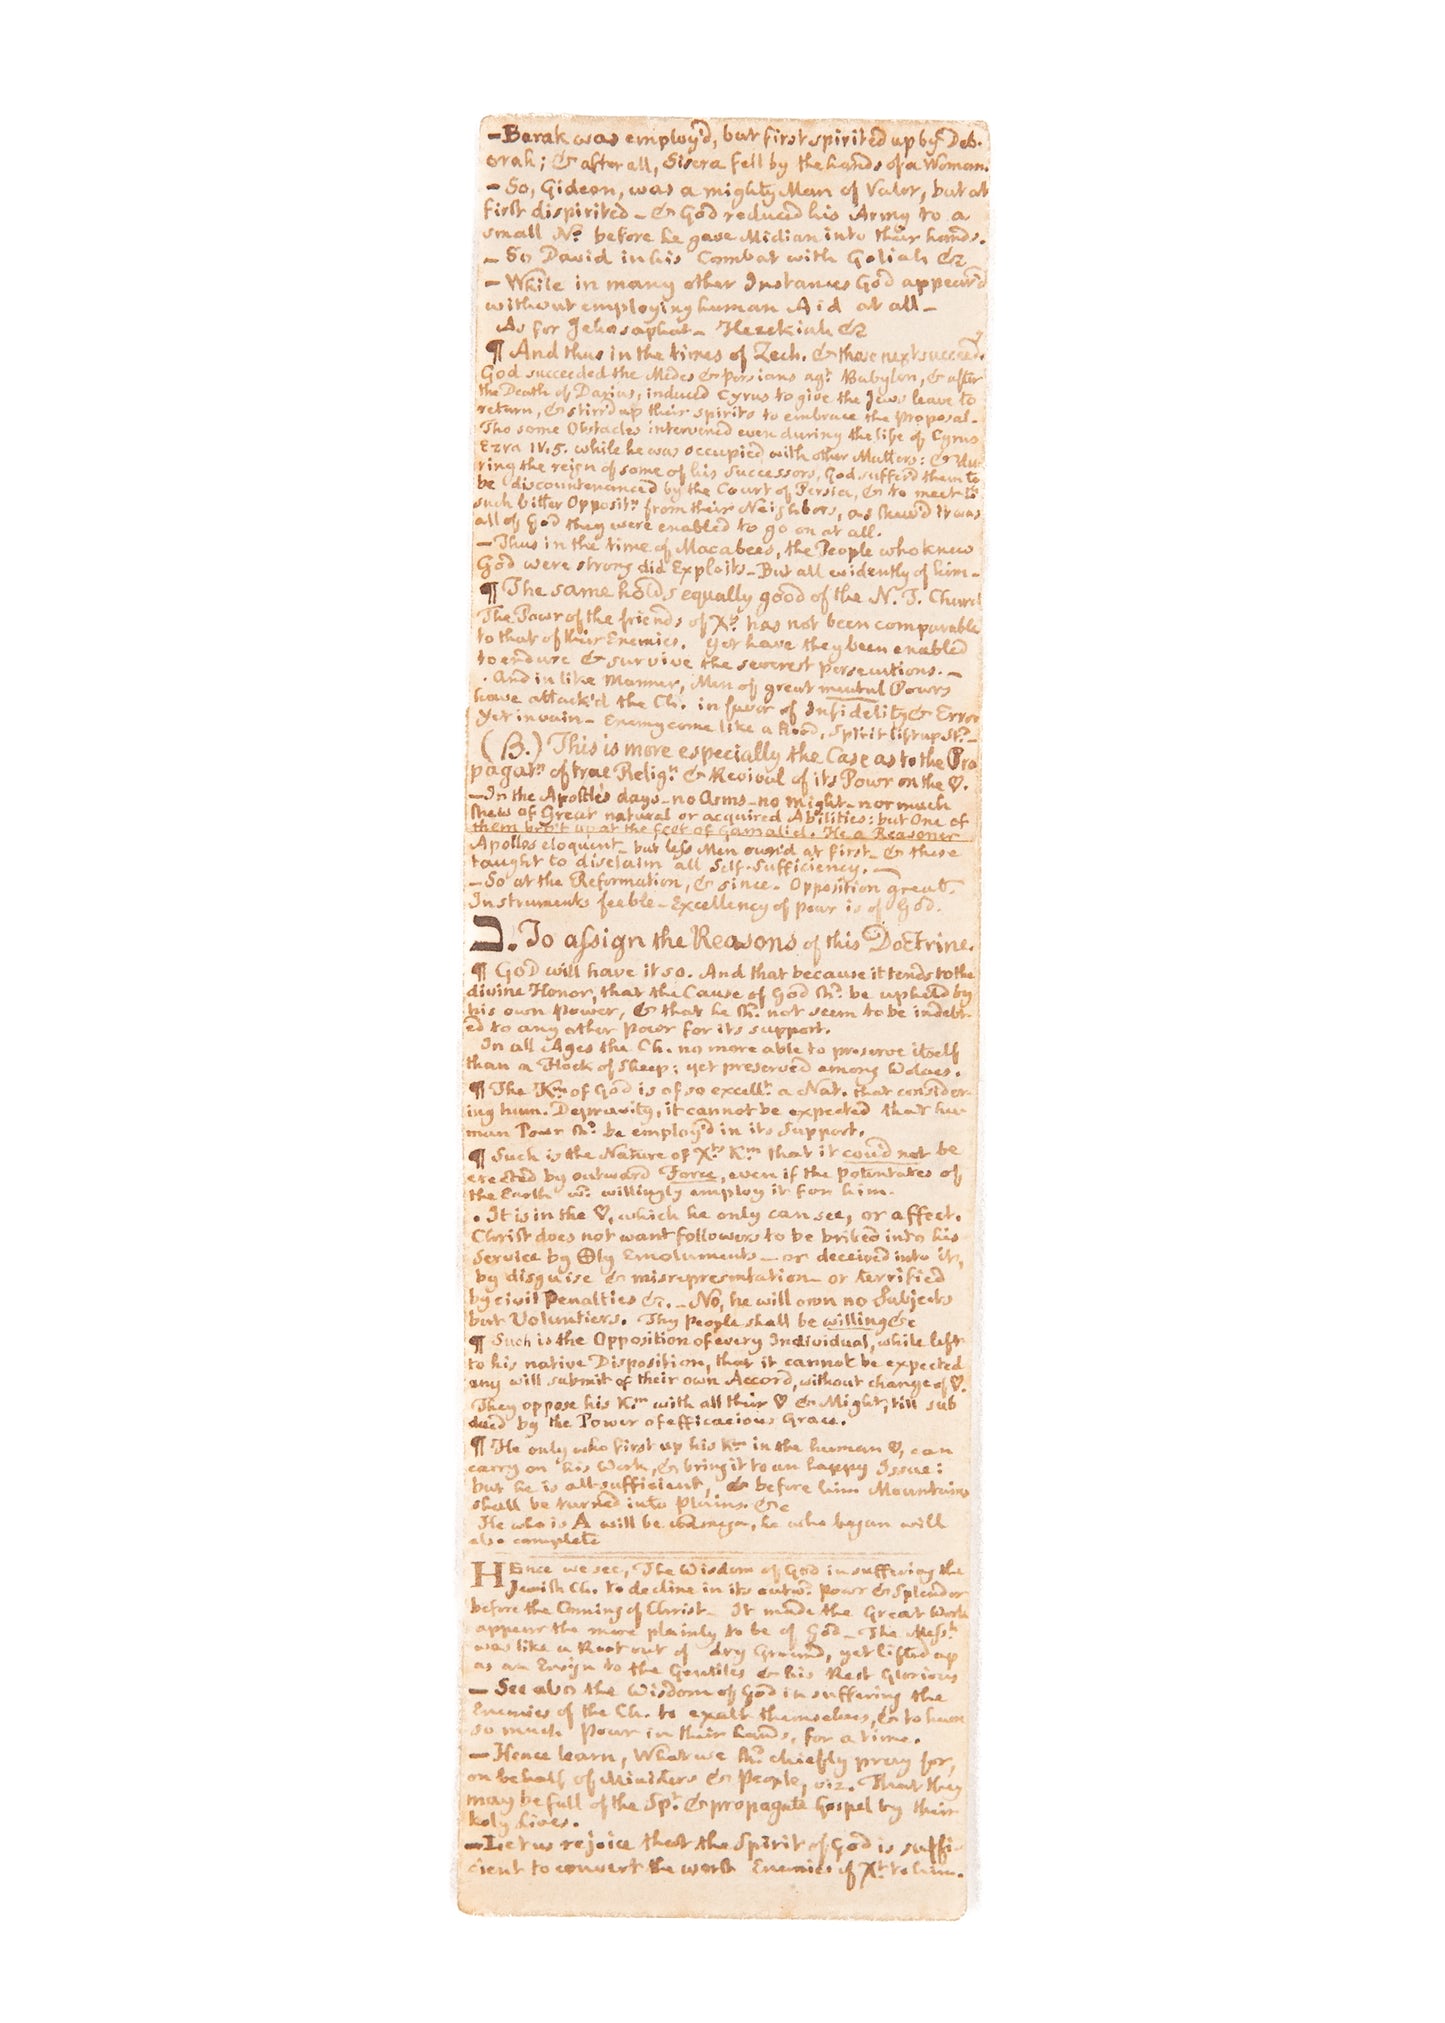 -Barak was employ'd, but first spirited up by Deb-
orah; & after all, Sisera fell by the hands of a Woman.
- So, Gideon, was a mighty Man of Valor, but at
first dispirited - & God reduced his Army to a
small No. before he gave Midian into their hands.
- So David in his Combat with Goliah &c
- While in many other Instances God appear'd
without employing human Aid at all -
As for Jehosaphat - Hezekiah &c
¶ And thus in the times of Zech. & those next succeed.
God succeeded the Medes & Persians agt. Babylon, & after
the Death of Darius, induced Cyrus to give the Jews leave to
return, & stirr'd up their spirits to embrace the Proposal -
Tho some Obstacles intervened even during the life of Cyrus
Ezra IV.5. while he was occupied with other Matters: & du-
ring the reign of some of his Successors, God suffer'd them to
be discountenanced by the Court of Persia, & to meet with
such bitter Oppositn. from their Neighbors, as shew'd it was
all of God they were enabled to go on at all.
- Thus in the time of Macabees, the People who knew
God were strong did Exploits - But all evidently of him -
¶ The same holds equally good of the N. T. Church
The Powr of the friends of Xt. has not been comparable
to that of their Enemies. Yet have they been enabled
to endure & survive the severest persecutions. -
. And in like Manner, Men of great mental Powrs
have attack'd the Ch. in favor of Infidelity & Error
Yet in vain - Enemy come like a flood, Spirit lift up St. -
(B.) This is more especially the Case as to the Pro
pagatn. of true Relign. & Revival of its Powr on the ♡.
-In the Apostles days - no Arms - no might - nor much
shew of Great natural or acquired Abilities: but One of
them bro't up at the feet of Gamaliel. He a Reasoner
Apollos eloquent - but less Men own'd at first - & these
taught to disclaim all Self-Sufficiency. -
-So at the Reformation, & since. Opposition great.
Instruments feeble - Excellency of powr is of God.
ב. To assign the Reasons of this Doctrine.
¶ God will have it so. And that because it tends to the
divine Honor, that the Cause of God shd. be upheld by
his own Power, & that he shd. not seem to be indebt-
ed to any other Powr for its support.
In all Ages the Ch. no more able to preserve itself
than a Flock of Sheep: yet preserved among Wolves.
¶ The Km of God is of so excellt. a Nat. that consider-
ing hum. Depravity, it cannot be expected that hu-
man Powr shd. be employ'd in its Support.
¶ Such is the Nature of Xts Km that it cou'd not be
erected by outward Force, even if the Potentates of
the Earth wd. willingly employ it for him.
. It is in the ♡, which he only can see, or affect.
Christ does not want followers to be bribed into his
Service by ⊕ly Emoluments - or deceived into it,
by disguise & misrepresentation - or terrified
by civil Penalties &c. - No, he will own no Subjects
but Voluntiers. Thy People shall be willing &c
¶ Such is the Opposition of every Individual, while left
to his native Disposition, that it cannot be expected
any will submit of their own Accord, without change of ♡.
They oppose his Km with all their ♡ & Might, till sub
dued by the Power of efficacious Grace.
¶ He only who first up his Km in the human ♡, can
carry on his Work, & bring it to an happy Issue:
but he is all-sufficient, & before him Mountains
shall be turned into plains. &c
He who is A will be , he who began will
also complete
HEnce we see, The Wisdom of God in suffering the
Jewish Ch. to decline in its outwd. Powr & Splendor
before the Coming of Christ - It made the Great Work
appear the more plainly to be of God - The Messh.
was like a Root out of dry Ground, yet lifted up
as an Ensign to the Gentiles & his Rest Glorious
- See also the Wisdom of God in suffering the
Enemies of the Ch. to exalt themselves, & to have
so much Powr in their hands, for a time.
- Hence learn, What we shd. chiefly pray for,
on behalf of Ministers & People, viz. That they
may be full of the Spt. & propagate Gospel by their
holy Lives.
-Let us rejoice that the Spirit of God is suffi-
cient to convert the worst Enemies of Xt. to him.